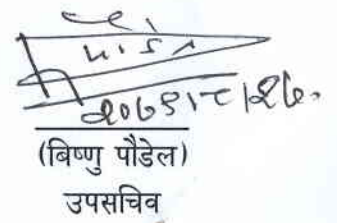 २०७९।८।२७
(बिष्णु पौडेल)
उपसचिव